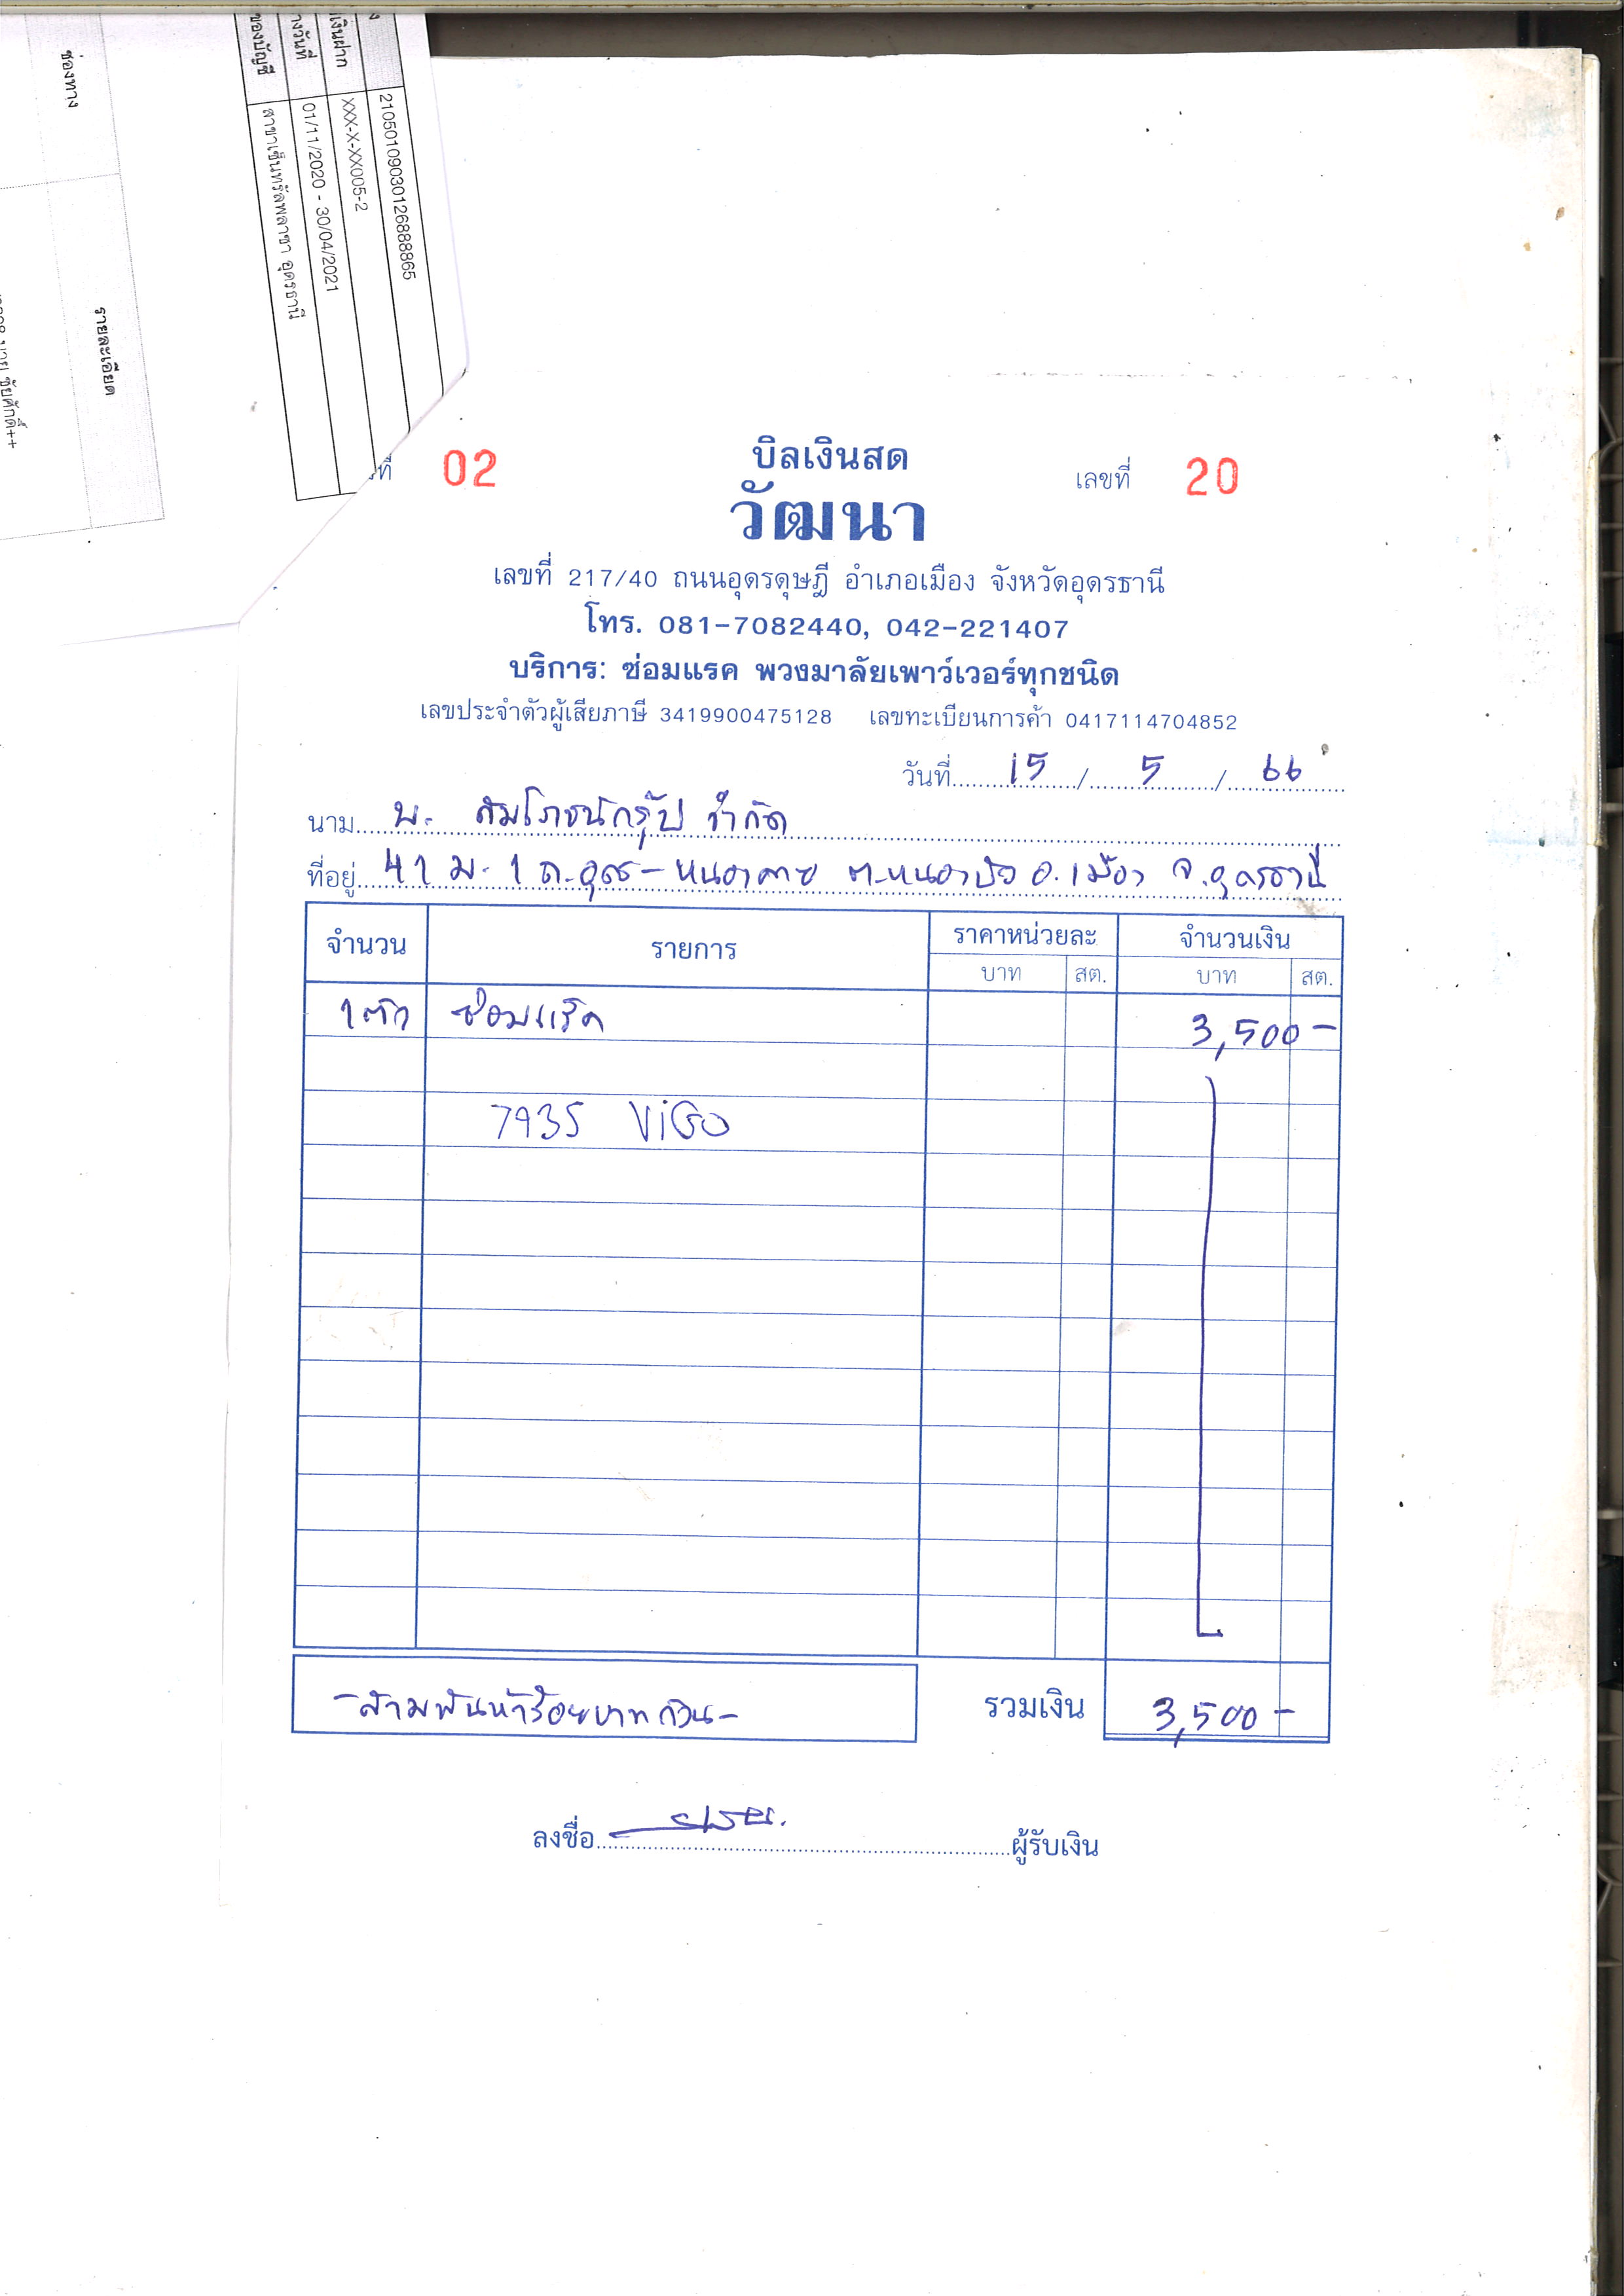 ช่องทาง
รายละเอียด
21050109030126888865
XXX-X-XX005-2
01/11/2020 - 30/04/2021
สาขาเซ็นทรัลพลาซา อุดรธานี
เงินฝาก
ของบัญชี
ชัยศักดิ์++
ที่ 02
บิลเงินสด
เลขที่ 20
วัฒนา
เลขที่ 217/40 ถนนอุดรดุษฎี อำเภอเมือง จังหวัดอุดรธานี
โทร. 081-7082440, 042-221407
บริการ: ซ่อมแรค พวงมาลัยเพาว์เวอร์ทุกชนิด
เลขประจำตัวผู้เสียภาษี 3419900475128 เลขทะเบียนการค้า 0417114704852
วันที่ 15 / 5 / 66
นาม บ. สมโภชน์กรุ๊ป จำกัด
ที่อยู่ 41 ม.1 ถ.อุดร-หนองคาย ต.หนองบัว อ.เมือง จ.อุดรธานี
จำนวน รายการ ราคาหน่วยละ จำนวนเงิน
บาท สต. บาท สต.
1ตัว ซ่อมแร็ค 3,500 -
7935 ViGO
-สามพันห้าร้อยบาทถ้วน- รวมเงิน 3,500 -
ลงชื่อ ผู้รับเงิน